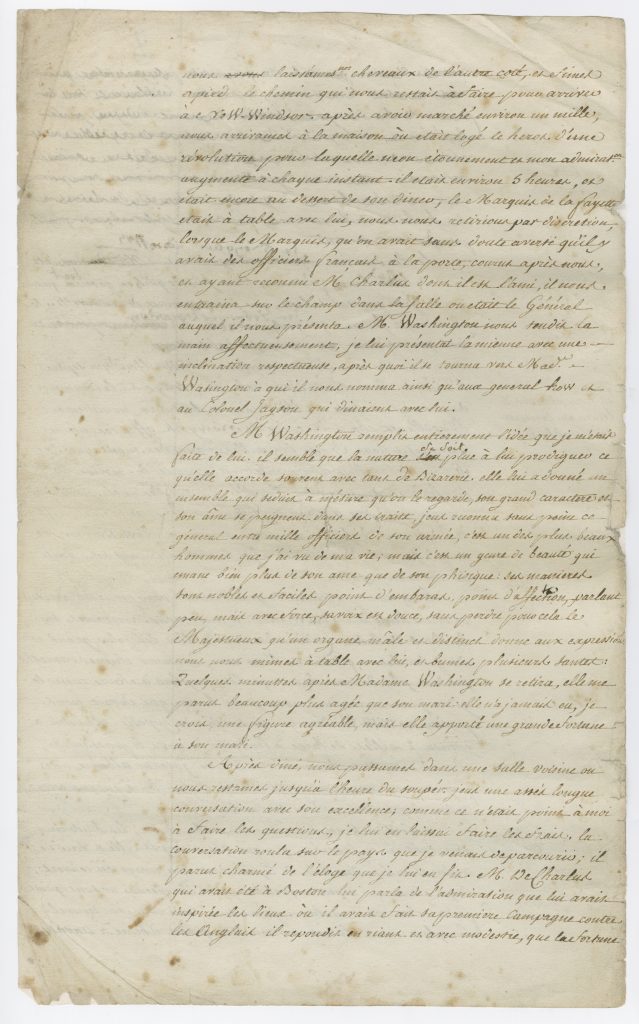 nous laissâmes nos chevaux de l'autre coté, et fimes
apied le chemin qui nous restait à faire pour arriver
à New-Windsor. après avoir marché environ un mille,
nous arrivames à la maison ou était logé le heros d'une
révolution pour laquelle mon étonnement et mon admirat.on
augmente à chaque instant. il etait environ 5 heures, on
etait encore au dessert de son diner, le Marquis de la fayette
etait à table avec lui, nous nous retirions par discretion,
lorsque le Marquis, qu'on avait sans doute averti qu'il y
avait des officiers francais à la porte, courut après nous,
et ayant reconnu M. Charlus dont il est l'ami, il nous
entraina sur le champ dans la salle ou etait le Général
auquel il nous présenta. M. Washington nous tendit la
main affectueusement, je lui presentai la mienne avec une
inclination respectueuse, après quoi il se tourna vers Mad.e
Wasington a qui il nous nomma ainsi qu'aux general how et
au Colonel Jayson qui dinaient avec lui.
M Washington remplit entierement l'idée que je m'étais
faite de lui. il semble que la nature se soit plue à lui prodiguer ce
qu'elle accorde souvent avec tant de Bizarerie. elle lui a donné un
ensemble qui séduit à mésure qu'on le regarde, son grand caractere et
son âme se peignent dans ses traits, j'eus reconnu sans peine ce
général entre mille officiers de son armée, c'est un des plus beaux
hommes que j'ai vu de ma vie; mais c'est un genre de beauté qui
emane bien plus de son ame que de son phisique: ses manieres
sont nobles et faciles point d'embaras, point d'affection, parlant
peu, mais avec force, sa voix est douce, sans perdre pour cela le
Majestueux qu'un organe mâle et distinct donne aux expressions
nous nous mimes à table avec lui, et bumes plusieurs santés:
Quelques minuttes après Madame Washington se retira, elle me
parut beaucoup plus agée que son mari: elle n'a jamais eu, je
crois une figure agréable, mais elle apporté une grande fortune
à son mari.
Après diné, nous passames dans une salle voisine ou
nous restames jusqu'à l'heure du soupér. j'eus une assés longue
conversation avec son excellence; comme ce n'etait point à moi
à faire les questions, je lui en laissai faire les frais. la
conversation roula sur le pays que je venais de parcourir; il
parut charmé de l'éloge que je lui en fis. M. De Charlus
qui avait été à Boston lui parla de l'admiration que lui avait
inspirée les lieux ou il avait fait sa premiere Campagne contre
les Anglais il repondit en riant et avec modestie, que la fortune